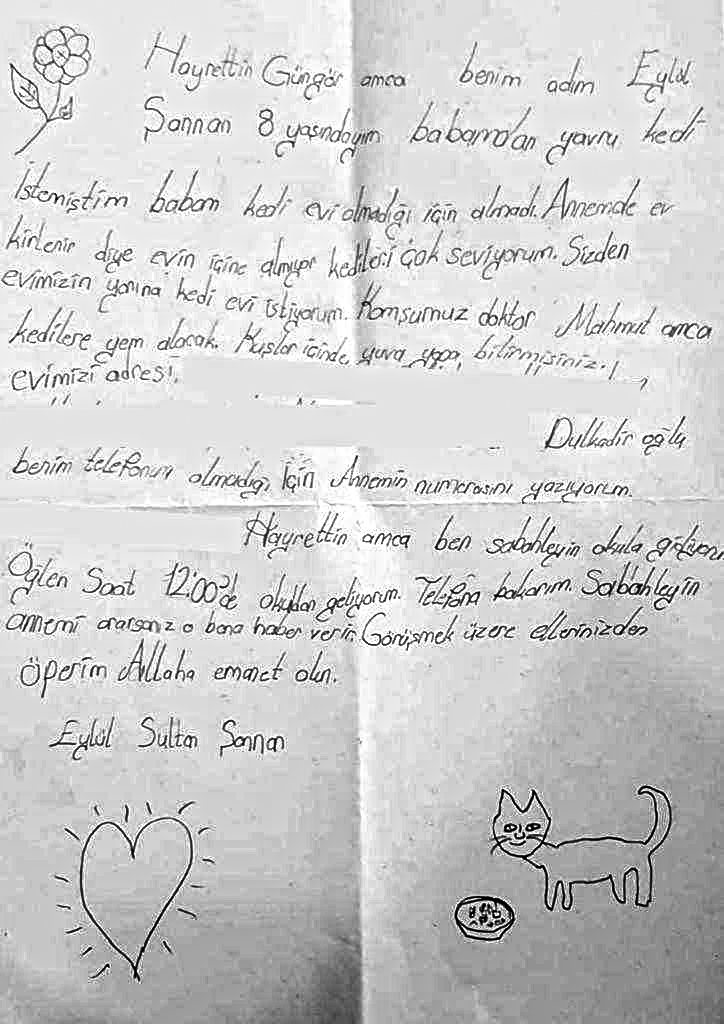 Hayrettin Güngör amca benim adım Eylül
Şannan 8 yaşındayım babamdan yavru kedi
İstemiştim babam kedi evi olmadığı için almadı. Annemde ev
kirlenir diye evin içine almıyor kedileri çok seviyorum. Sizden
evimizin yanına kedi evi istiyorum. Komşumuz doktor Mahmut amca
kedilere yem alacak. Kuşlar içinde yuva yapa bilirmisiniz.
evimizi adresi.
Dulkadir oğlu
benim telefonum olmadığı İçin Annemin numarasını yazıyorum.
Hayrettin amca ben sabahleyin okula gidiyorum
Öğlen Saat 12:00'de okuldan geliyorum. Telefona bakarım. Sabahleyin
annemi ararsanız o bana haber verir. Görüşmek üzere ellerinizden
öperim Allaha emanet olun.
Eylül Sultan Şannan